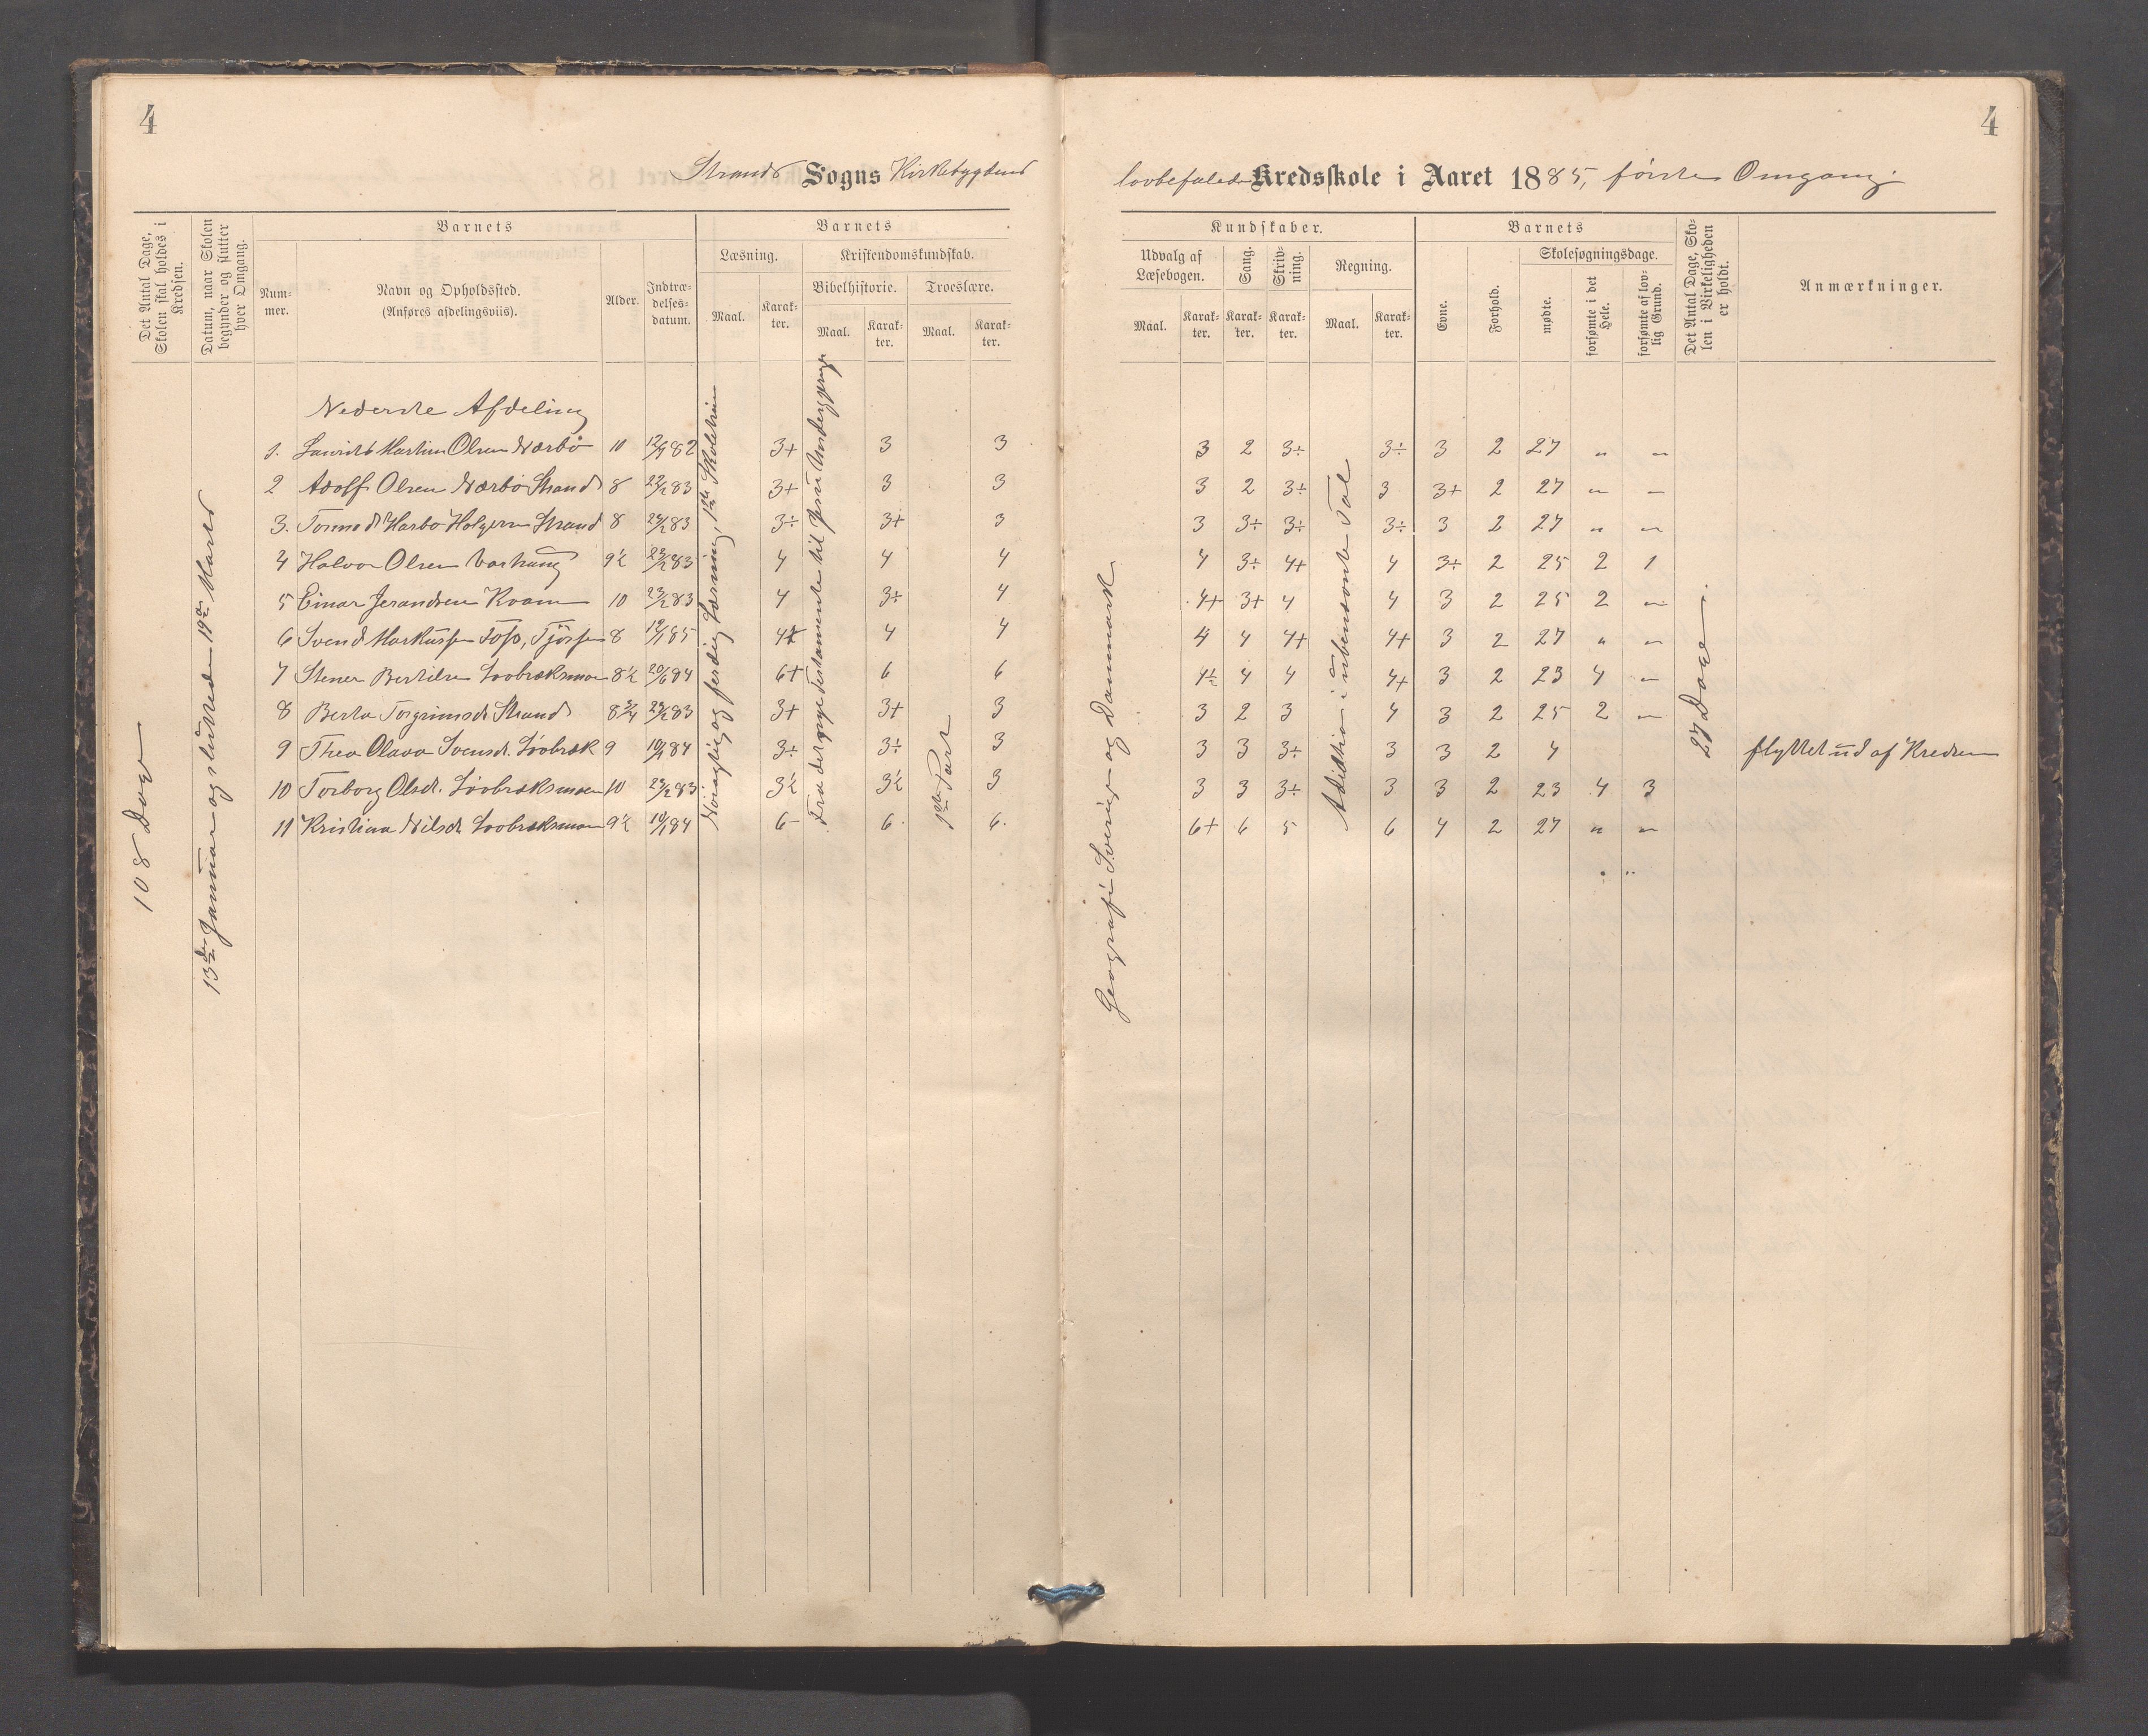 4
4
Strands Sogns Kirkebygdens
lovbefalede Kredsskole i Aaret 1885, förste Omgang.
Det Antal Dage, Skolen skal holdes i Kredsen.
Datum, naar Skolen begynder og slutter hver Omgang.
Barnets
Num-mer.
Navn og Opholdssted.
(Anføres afdelingsviis).
Alder.
Indtræ-delses-datum.
Barnets
Læsning.
Maal.
Karak-ter.
Kristendomskundskab.
Bibelhistorie.
Troeslære.
Maal.
Karak-ter.
Maal.
Karak-ter.
Kundskaber.
Udvalg af Læsebogen.
Sang.
Skriv-ning.
Regning.
Maal.
Karak-ter.
Karak-ter.
Karak-ter.
Maal.
Karak-ter.
Barnets
Evne.
Forhold.
Skolesøgningsdage.
mødte.
forsømte i det Hele.
forsømte af lov-lig Grund.
Det Antal Dage, Sko-len i Virkeligheden er holdt.
Anmærkninger.
108 Dage
13de Januar og sluttede 19de Marts
Nøiagtig og færdig Læsning, 1ste Skoletrin
Fra det nye Testamente til Jesu Undergjerninger
1ste Part
Geografi Sverige og Danmark
Addition i ubenævnte Tal
27 Dage
Nederste Afdeling
1. Laurits Martin Olsen Nærbö 10 12/9 82 3+ 3 3 3 2 3÷ 3÷ 3 2 27 " "
2 Adolf Olsen Nærbö Strand 8 23/2 83 3+ 3 3 3 2 3÷ 3 3+ 2 27 " "
3. Holgersen Strand 8 23/2 83 3÷ 3+ 3 3 3÷ 3÷ 3÷ 3 2 27 " "
4 Halvor Olsen Varhaug 9½ 23/2 83 4 4 4 4 3÷ 4+ 4 3÷ 2 25 2 1
5 Einar Jerandsen Kvam 10 23/2 83 4 3÷ 4 4+ 3+ 4 4 3 2 25 2 "
6 Svend Markussen Foss, 8 19/1 85 4 4 4 4 4 4+ 4+ 3 2 27 " "
7 Stener Bertilsen Löobræksmoen 8½ 20/6 84 6+ 6 6 4½ 4 4 4+ 3 2 23 4 "
8 Berta Torgrimsdt Strand 8¾ 23/2 83 3+ 3+ 3 3 2 3 4 3 2 25 2 "
9 Thea Olava Svensdt. Löobræk 9 10/1 84 3÷ 3÷ 3 3 3 3÷ 3 3 2 4 flyttet ud af Kredsen
10 Torborg Olsdt. Löobræksmoen 10 23/2 83 3½ 3½ 3 3 3 3÷ 3 3 2 23 4 3
11 Kristina Nilsdt Löobræksmoen 9½ 10/1 84 6- 6 6 6+ 6 5 6 4 2 27 " "